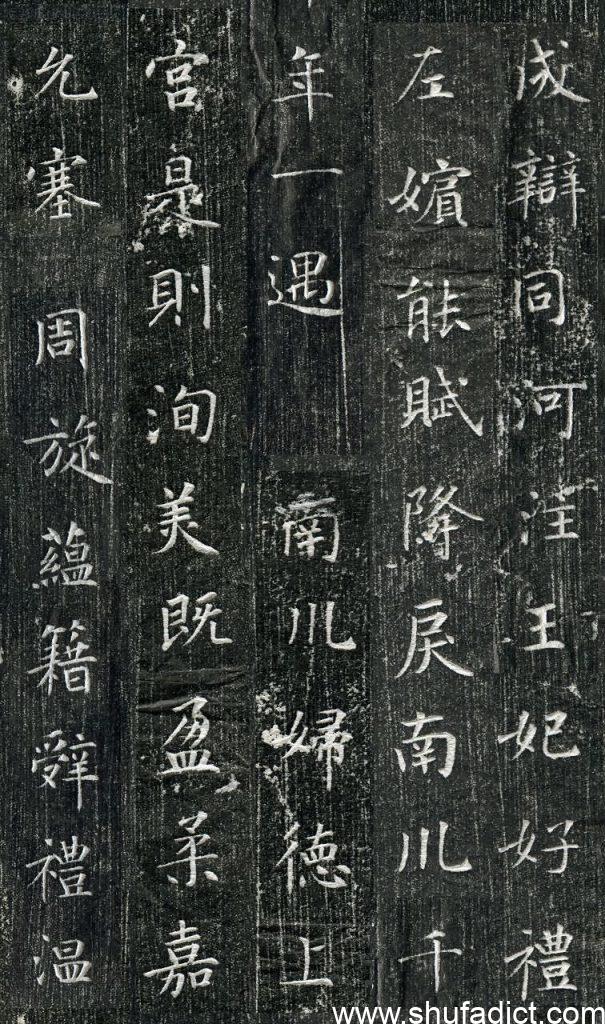 成辯同河注王妃好禮
左嬪能賦降戾南川千
年一遇 南川婦德上
宮是則洵美既盈柔嘉
允塞 周旋蘊籍辭禮温
www.shufadict.com